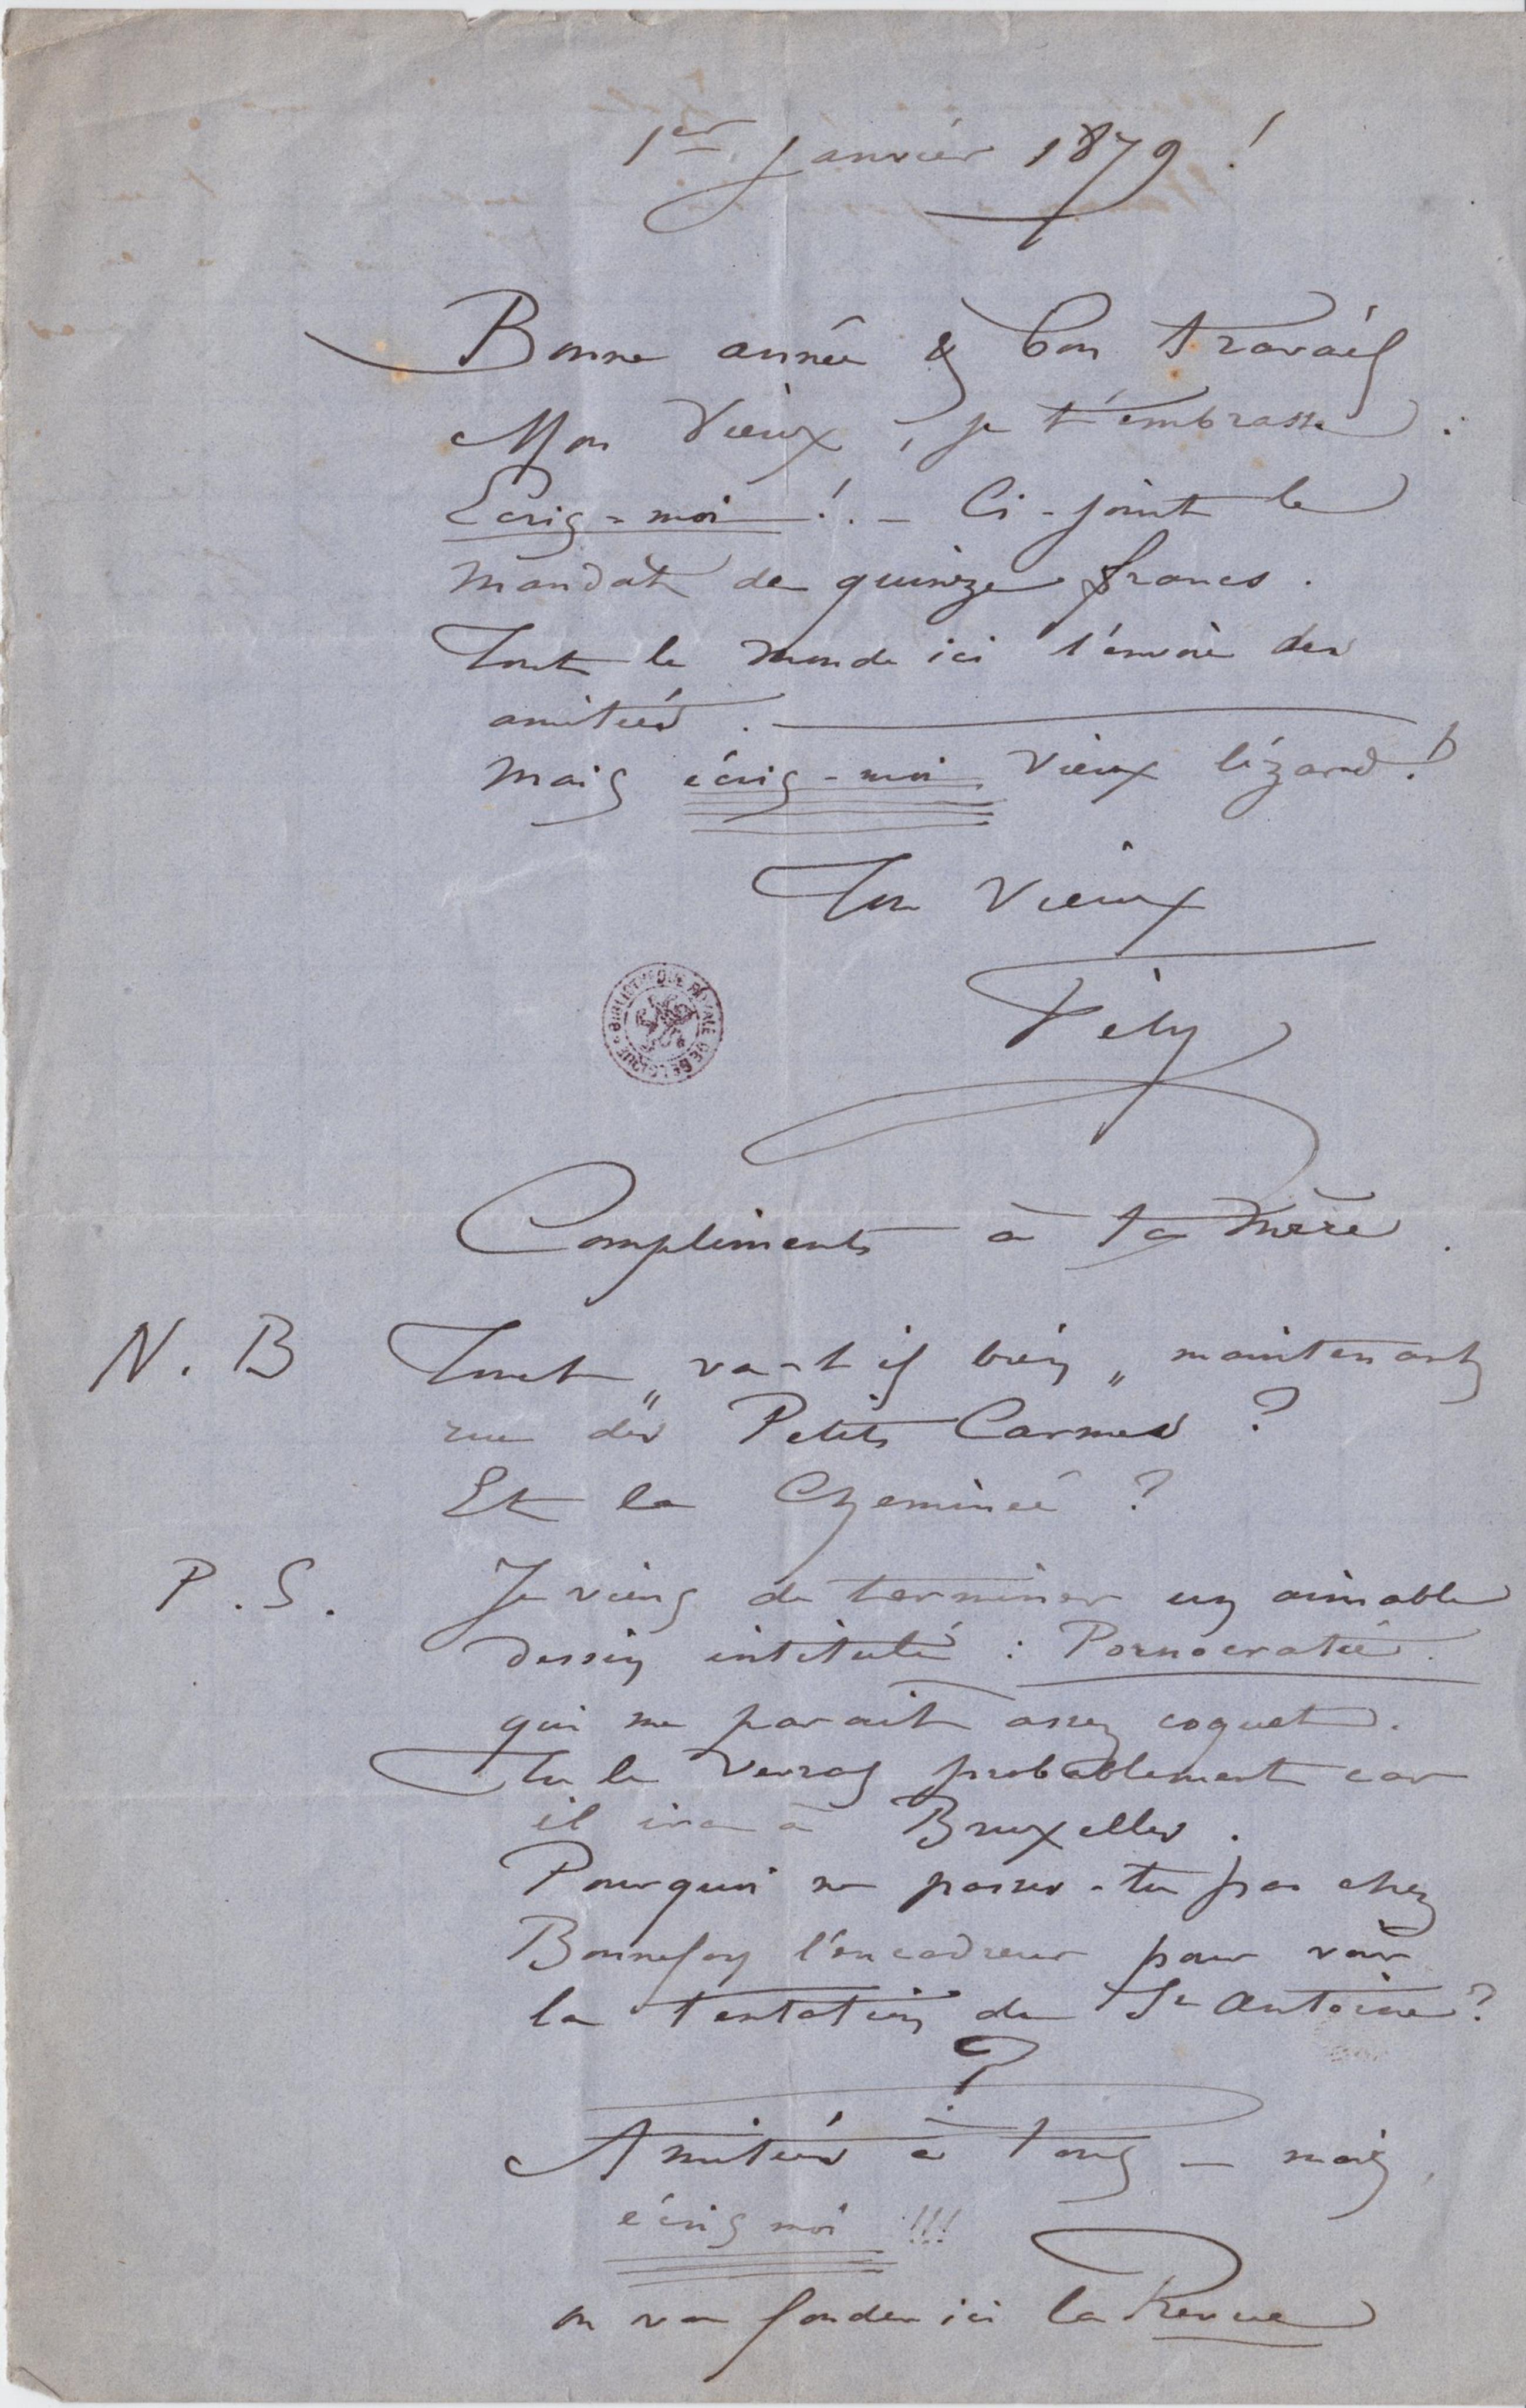 1er Janvier 1879 !
Bonne année & bon travail
Mon Vieux, je t'embrasse.
Ecris-moi !. – Ci-joint le
mandat de quinze francs.
Tout le monde ici t'envoie des
amitiés.
Mais écris-moi vieux lézard !
Ton Vieux
Fély
BIBLIOTHEQUE ROYALE DE BELGIQUE
Compliments à ta Mère.
N. B Tout „ va-t il bien „ maintenant
rue des Petits Carmes ?
Et la Cheminée ?
P. S. Je viens de terminer un aimable
dessin intitulé : Pornocratie.
qui me parait assez coquet.
Tu le verras probablement car
il ira à Bruxelles.
Pourquoi ne passes-tu pas chez
Bonnefoy l'encadreur pour voir
la tentation de St Antoine ?
?
Amitiés à tous – mais
écris moi !!!
on va fonder ici la Revue